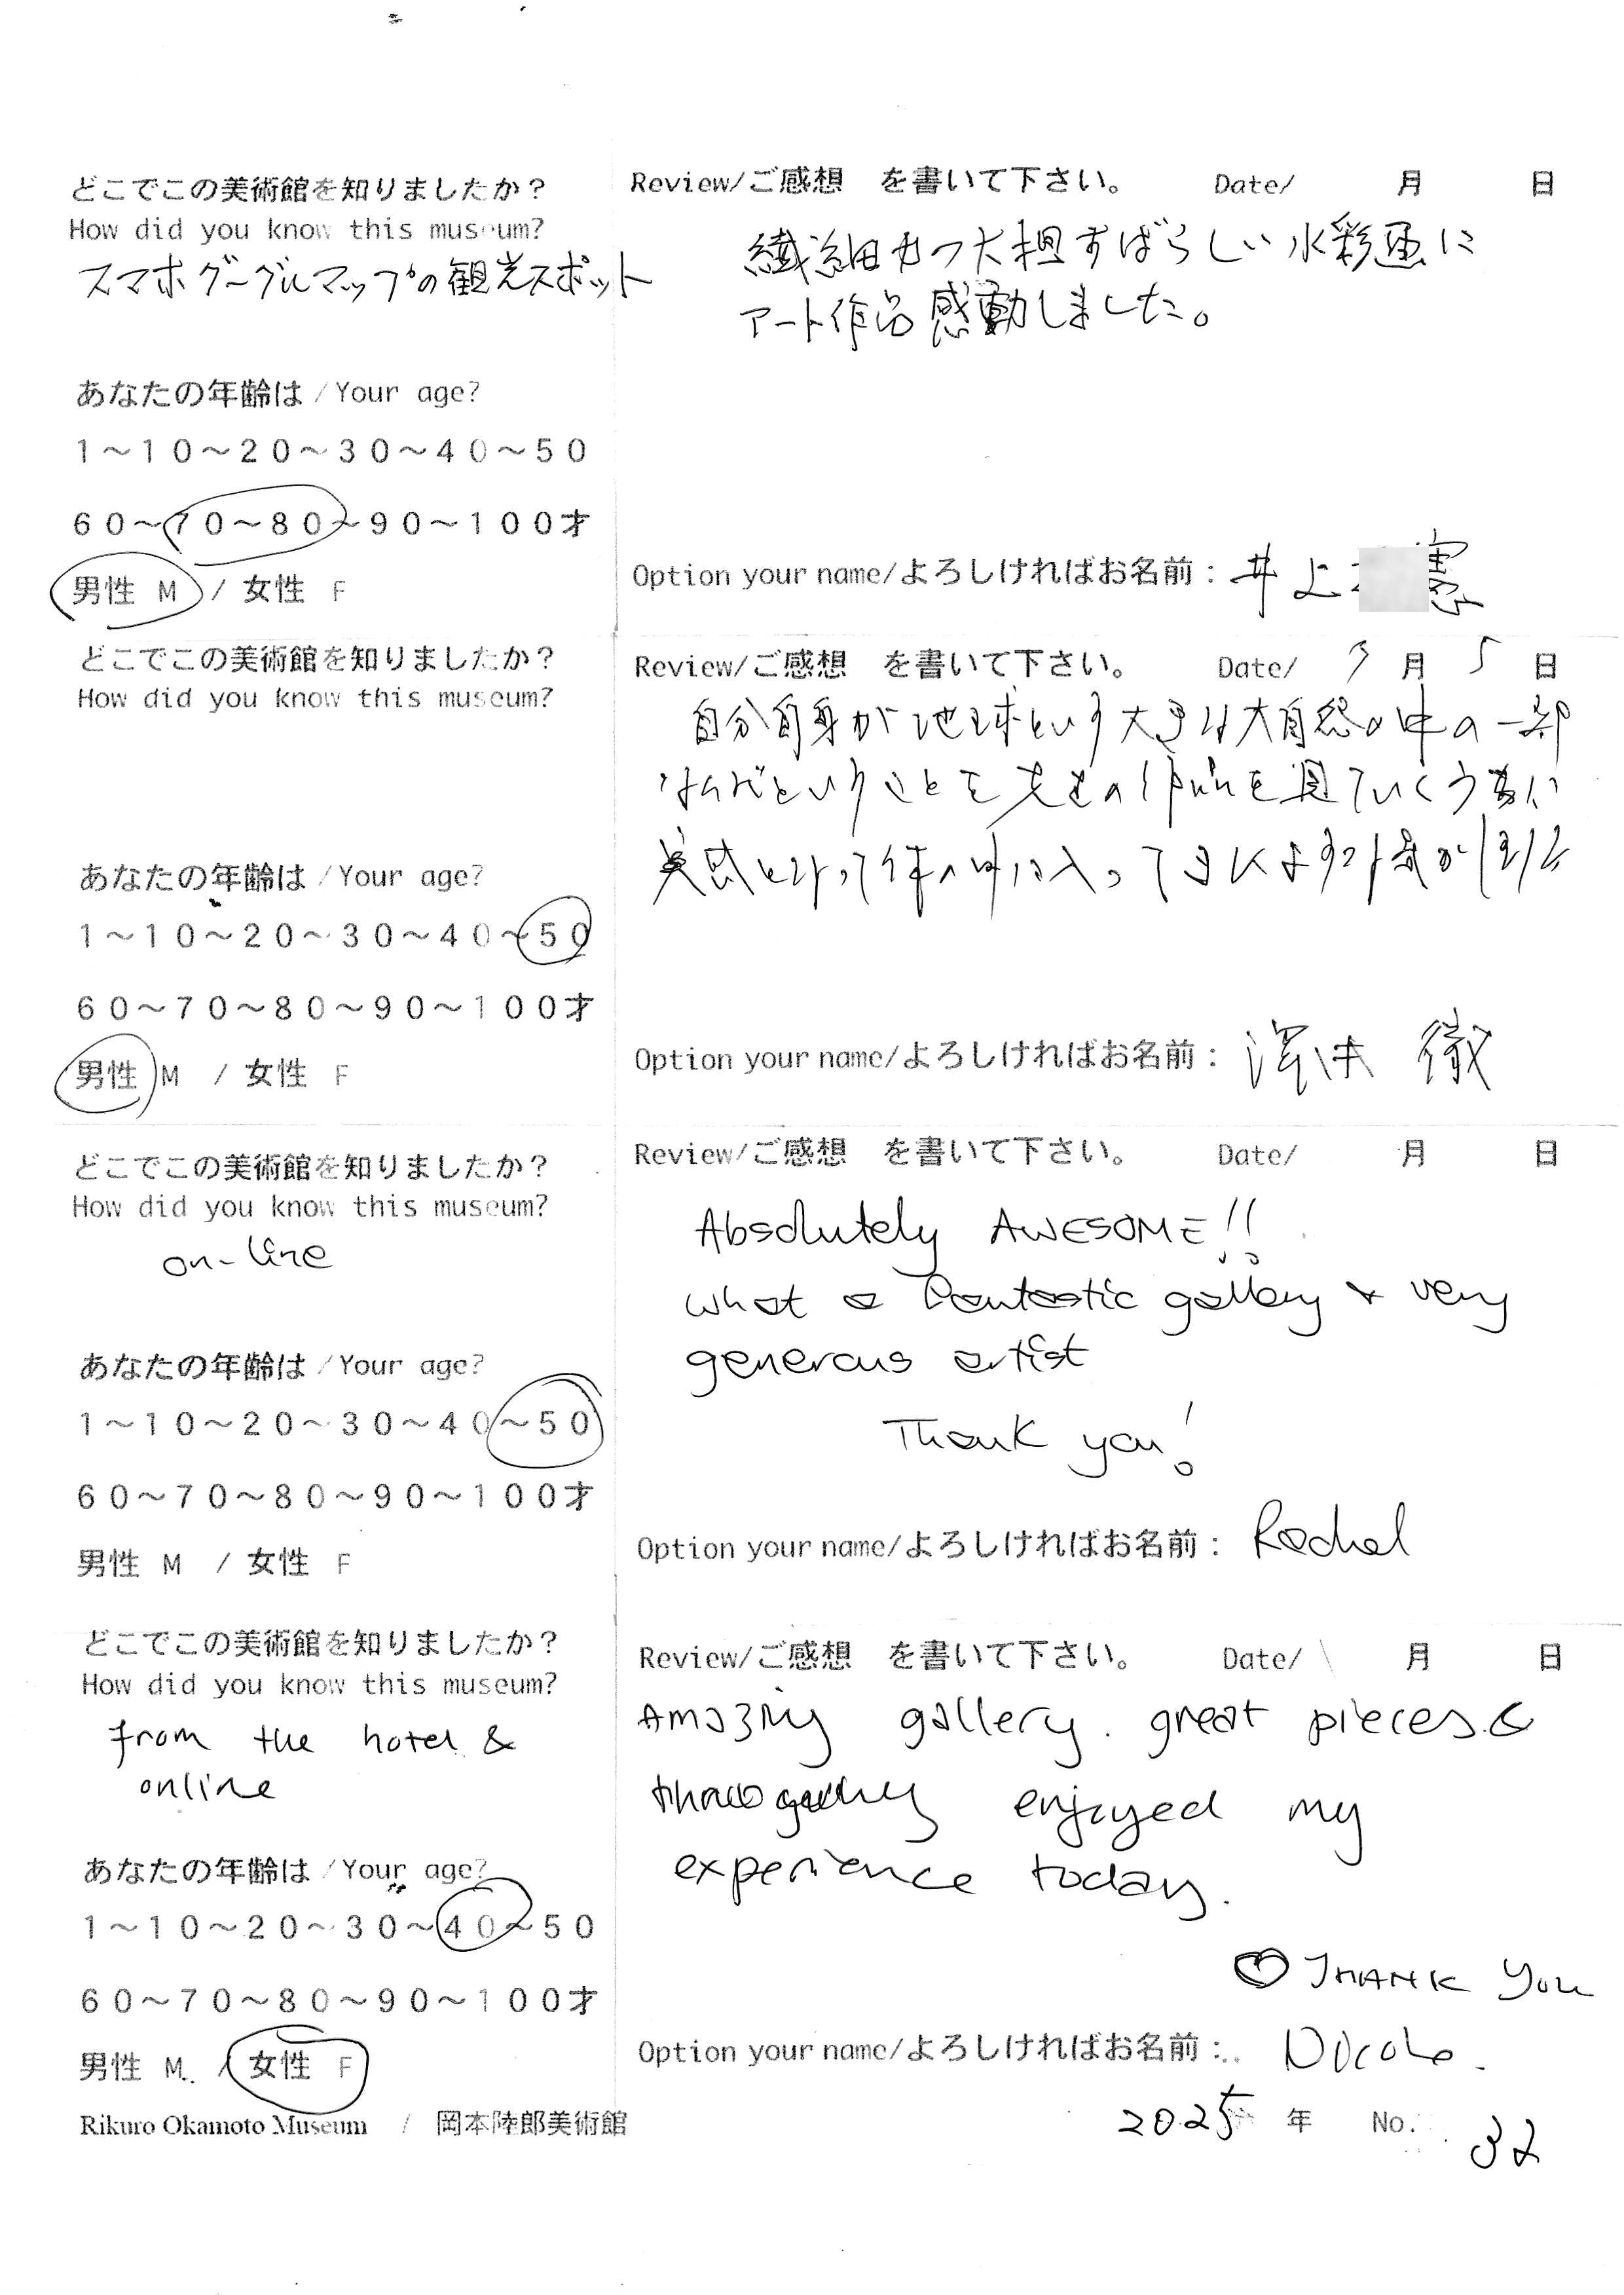 どこでこの美術館を知りましたか？
How did you know this museum?
スマホグーグルマップの観光スポット
あなたの年齢は / Your age?
1～10～20～30～40～50
60～70～80～90～100才
男性 M / 女性 F
Review/ご感想 を書いて下さい。 Date/ 月 日
繊細かつ大担すばらしい水彩画に
アート作品感動しました。
Option your name/よろしければお名前： 井上 憲
どこでこの美術館を知りましたか？
How did you know this museum?
あなたの年齢は / Your age?
1～10～20～30～40～50
60～70～80～90～100才
男性 M / 女性 F
Review/ご感想 を書いて下さい。 Date/ 月 5 日
自分自身が地球という大きな大自然の中の一部
なんだということを先生の を見ていくうちに
実感となって体の中に入ってきたような気が
Option your name/よろしければお名前： 徹
どこでこの美術館を知りましたか？
How did you know this museum?
on-line
あなたの年齢は / Your age?
1～10～20～30～40～50
60～70～80～90～100才
男性 M / 女性 F
Review/ご感想 を書いて下さい。 Date/ 月 日
Absolutely AWESOME!!
what a fantastic gallery & very
generous artist
Thank you!
Option your name/よろしければお名前： Rachel
どこでこの美術館を知りましたか？
How did you know this museum?
from the hotel &
online
あなたの年齢は / Your age?
1～10～20～30～40～50
60～70～80～90～100才
男性 M / 女性 F
Review/ご感想 を書いて下さい。 Date/ 月 日
Amazing gallery. great pieces &
enjoyed my
experience today.
♡ THANK YOU
Option your name/よろしければお名前： Nicole.
Rikuro Okamoto Museum / 岡本陸郎美術館
2025 年 No. 32